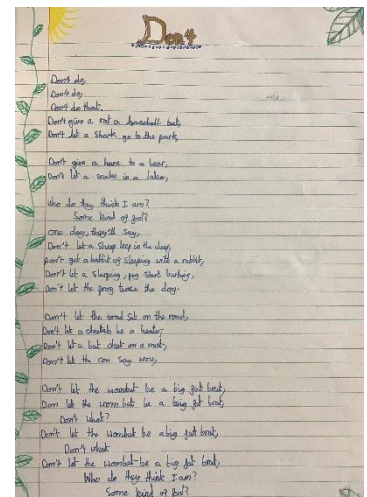 Don't
Don't do,
Don't do,
Don't do that.
Don't give a rat a baseball bat,
Don't let a shark go to the park,
Don't give a hare to a bear,
Don't let a snake in a lake,
Who do they think I am?
Some kind of fool?
One day, they'll say,
Don't let a sheep leep in the day,
Don't get a habit of sleeping with a rabbit,
Don't let a slurping, pig start burping,
Don't let the frog tease the dog.
Don't let the toad sit on the road,
Don't let a cheetah be a
Don't let a bat chat on a mat,
Don't let the cow say wow,
Don't let the wombat be a big fat brat,
Don let the wombat be a big fat brat,
Don't what?
Don't let the wombat be a big fat brat,
Don't what
Don't let the wombat be a big fat brat,
Who do they think I am?
Some kind of fool?